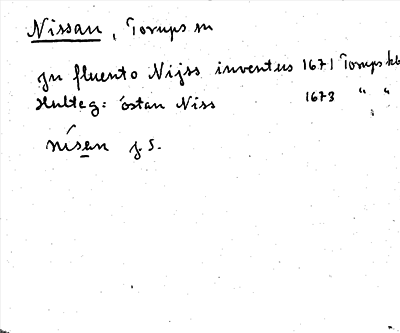 Nissan, Torups sn
jn fluento Nijss inventus 1671 Torups kb
Hulteg: östan Niss 1673 " "
nísen JS.